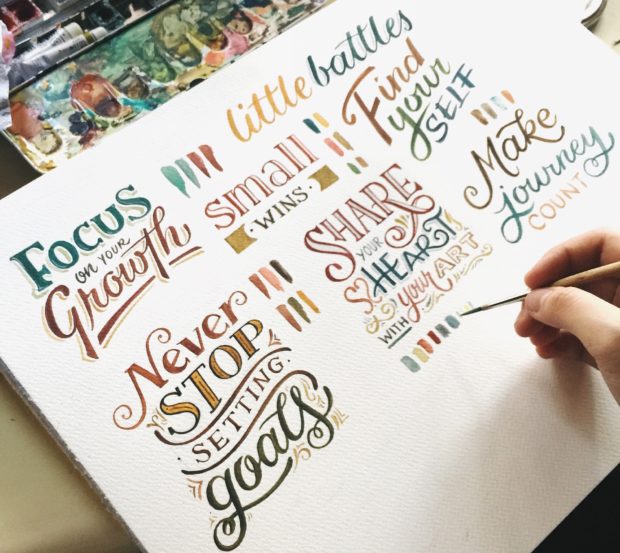 little battles
Find
your
SELF
small
WINS
Make
journey
COUNT
FOCUS
on YOUR
Growth
SHARE
YOUR
HEART
WITH your ART
Never
STOP
SETTING
goals